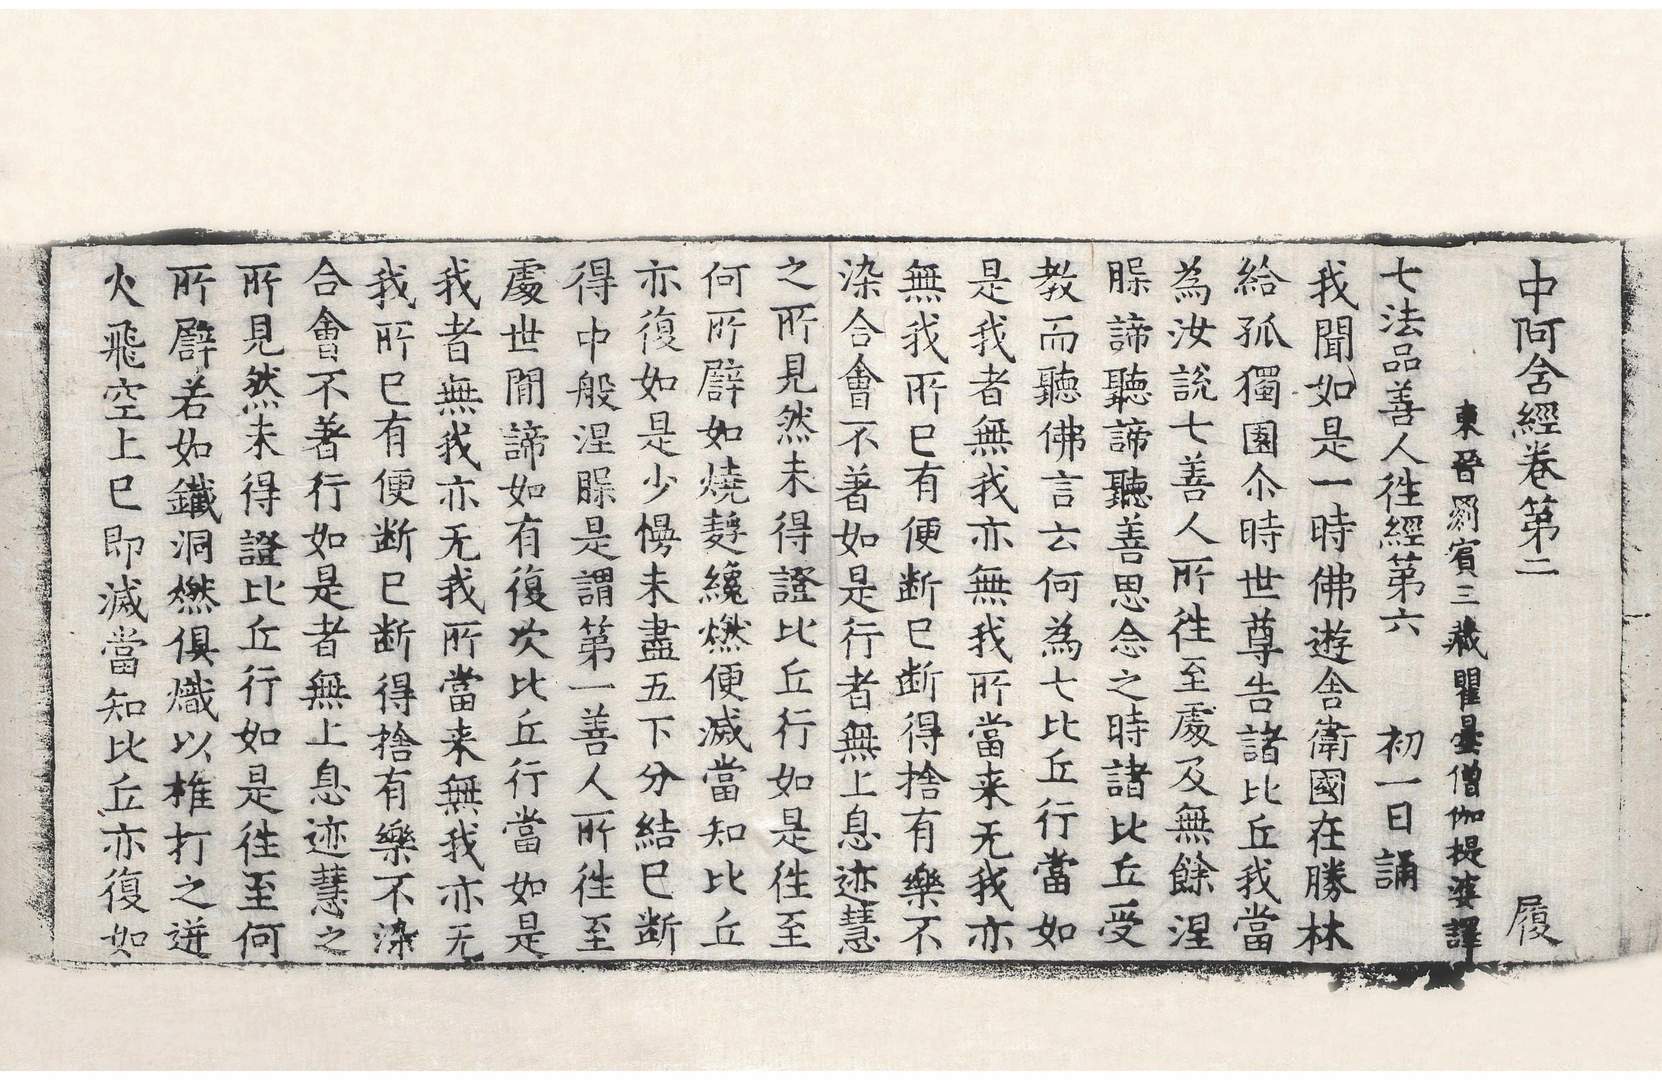 中阿含經卷第二 履
東晉罽賓三藏瞿曇僧伽提婆譯
七法品善人徃經第六 初一日誦
我聞如是一時佛遊舍衛國在勝林
給孤獨園尒時世尊告諸比丘我當
為汝說七善人所徃至處及無餘涅
槃諦聽諦聽善思念之時諸比丘受
教而聽佛言云何為七比丘行當如
是我者無我亦無我所當来无我亦
無我所已有便断已断得捨有樂不
染合會不著如是行者無上息迹慧
之所見然未得證比丘行如是徃至
何所譬如燒䴬纔燃便滅當知比丘
亦復如是少慢未盡五下分結已断
得中般涅槃是謂第一善人所徃至
處世間諦如有復次比丘行當如是
我者無我亦无我所當来無我亦无
我所已有便断已断得捨有樂不染
合會不著行如是者無上息迹慧之
所見然未得證比丘行如是徃至何
所譬若如鐵洞燃俱熾以椎打之迸
火飛空上已即滅當知比丘亦復如